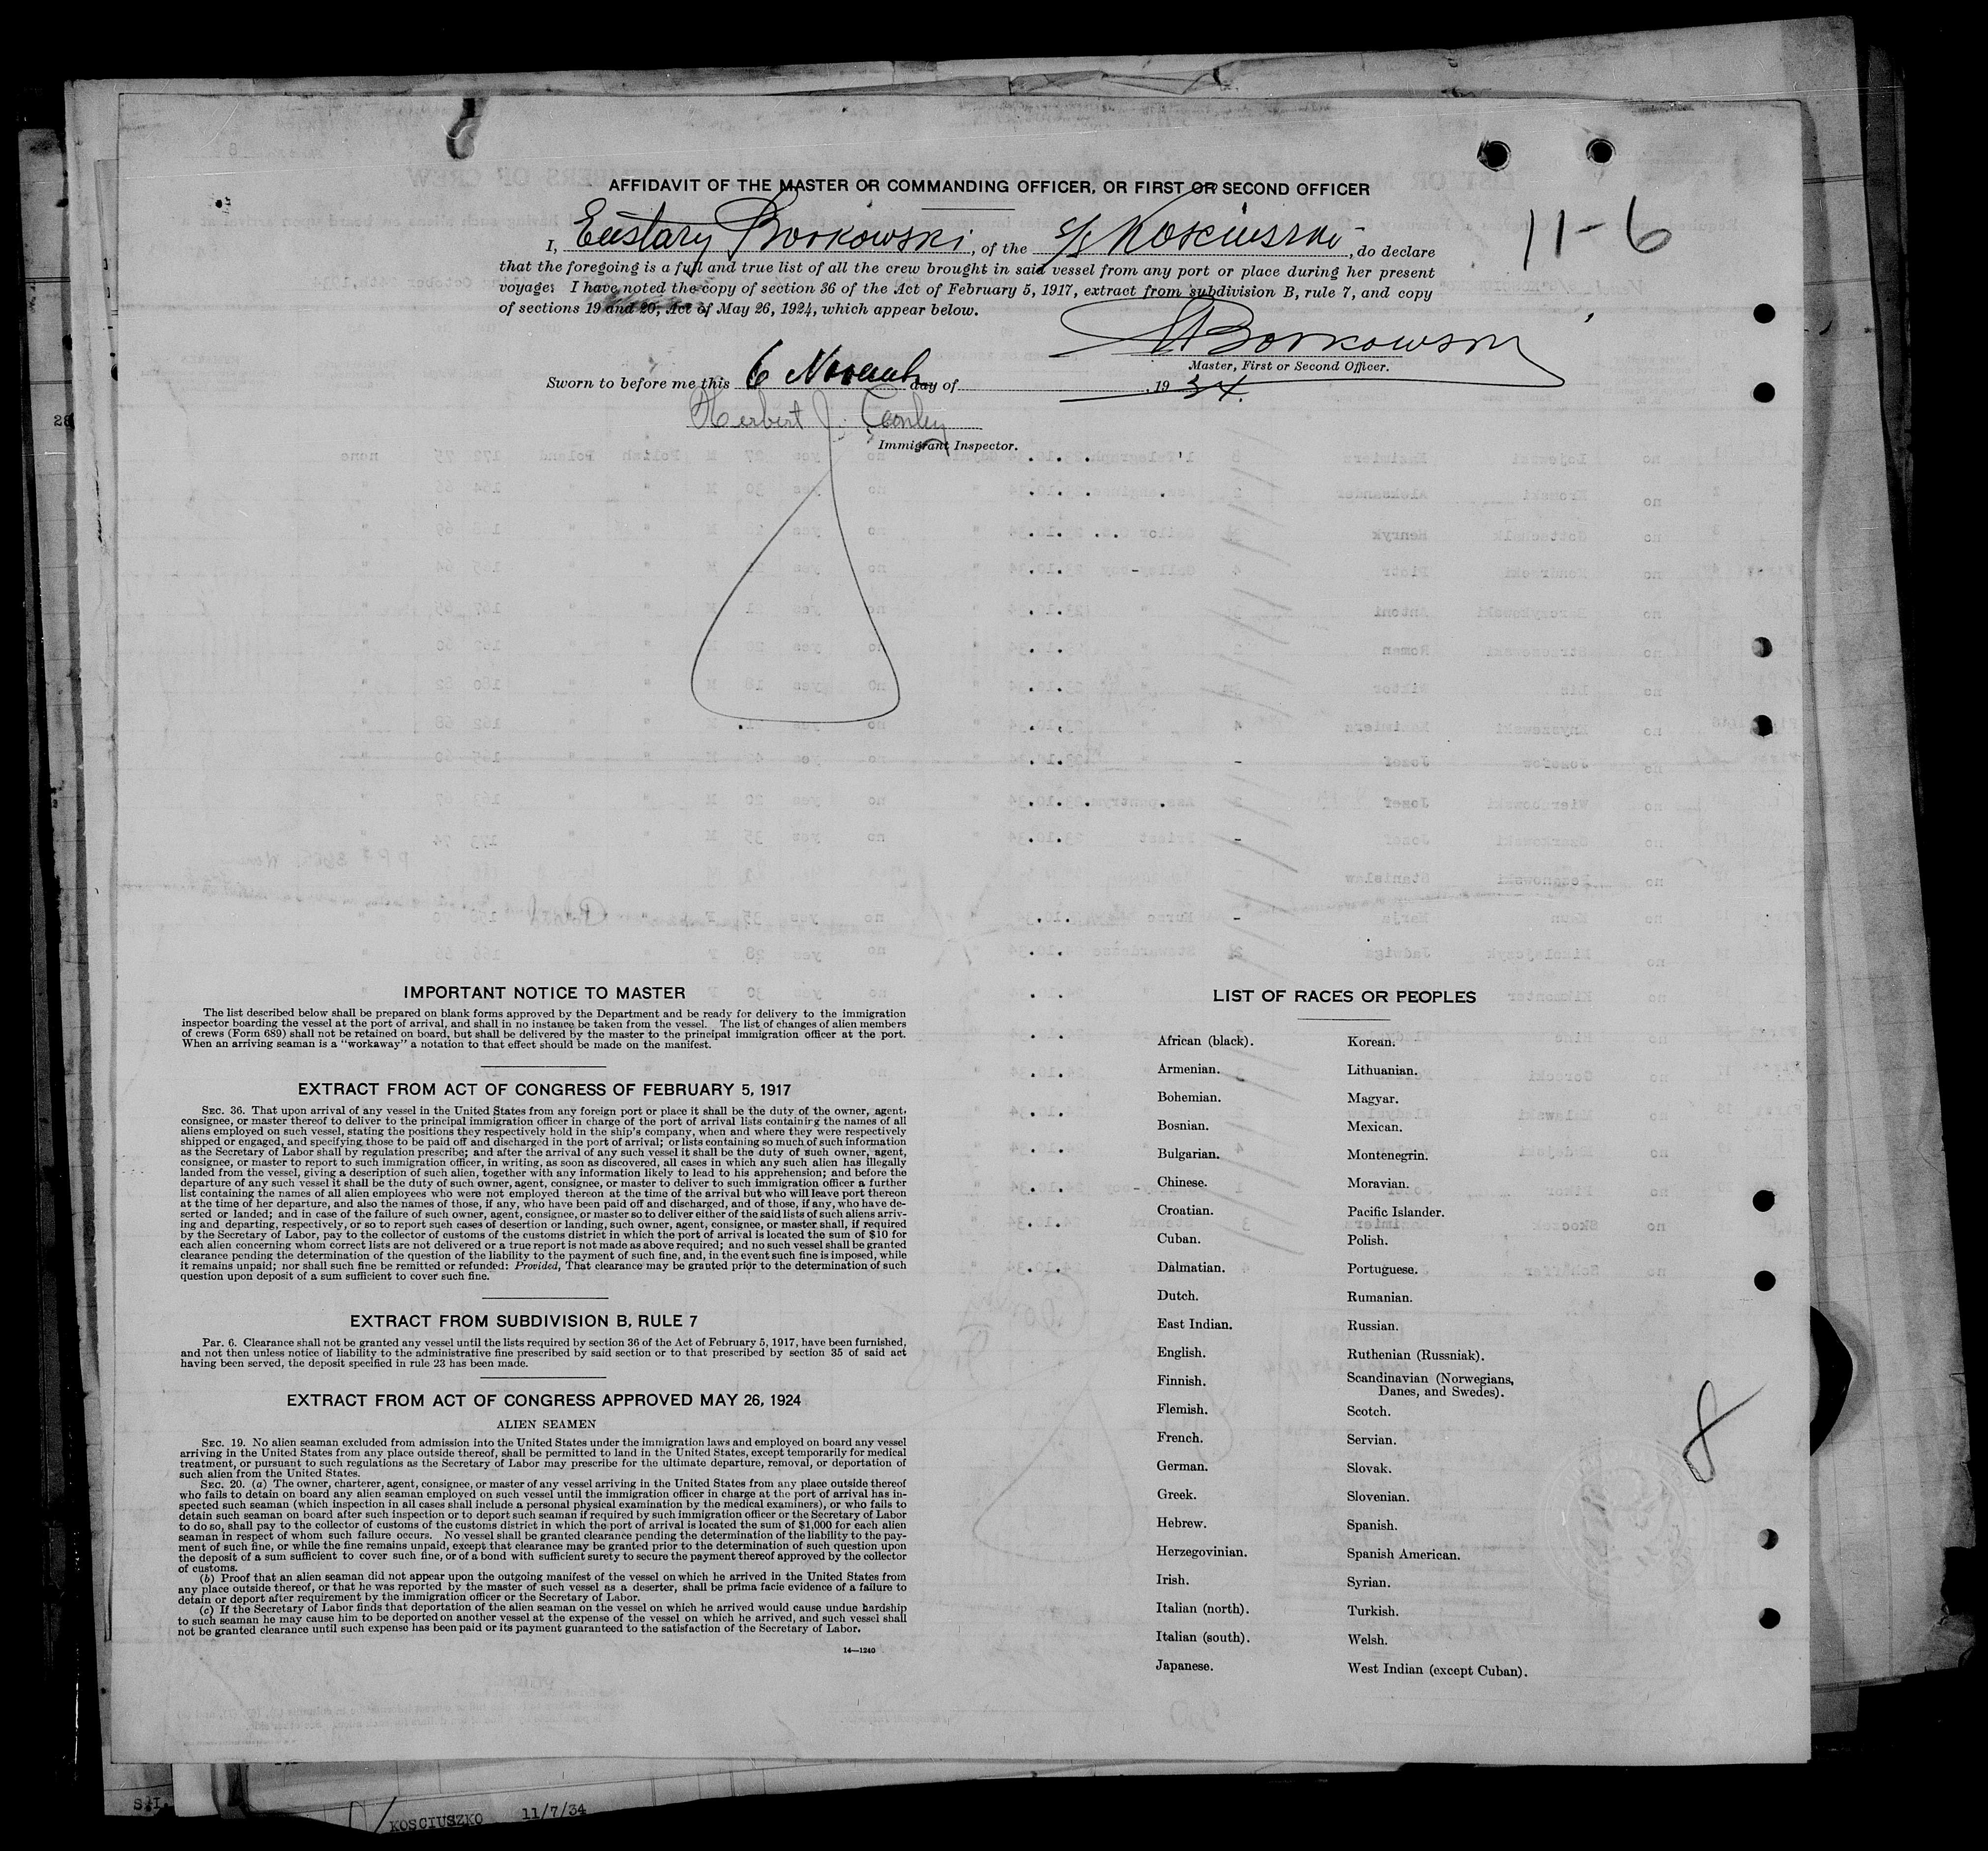 AFFIDAVIT OF THE MASTER OR COMMANDING OFFICER, OR FIRST OR SECOND OFFICER
11-6
I, Eustazy Borkowski, of the s/s Kosciuszko, do declare
that the foregoing is a full and true list of all the crew brought in said vessel from any port or place during her present
voyage. I have noted the copy of section 36 of the Act of February 5, 1917, extract from subdivision B, rule 7, and copy
of sections 19 and 20, Act of May 26, 1924, which appear below.
Borkowski
Master, First or Second Officer.
Sworn to before me this 6 Novemb day of , 1934.
Herbert J. Conley
Immigrant Inspector.
IMPORTANT NOTICE TO MASTER
The list described below shall be prepared on blank forms approved by the Department and be ready for delivery to the immigration
inspector boarding the vessel at the port of arrival, and shall in no instance be taken from the vessel. The list of changes of alien members
of crews (Form 689) shall not be retained on board, but shall be delivered by the master to the principal immigration officer at the port.
When an arriving seaman is a "workaway" a notation to that effect should be made on the manifest.
EXTRACT FROM ACT OF CONGRESS OF FEBRUARY 5, 1917
SEC. 36. That upon arrival of any vessel in the United States from any foreign port or place it shall be the duty of the owner, agent,
consignee, or master thereof to deliver to the principal immigration officer in charge of the port of arrival lists containing the names of all
aliens employed on such vessel, stating the positions they respectively hold in the ship's company, when and where they were respectively
shipped or engaged, and specifying those to be paid off and discharged in the port of arrival; or lists containing so much of such information
as the Secretary of Labor shall by regulation prescribe; and after the arrival of any such vessel it shall be the duty of such owner, agent,
consignee, or master to report to such immigration officer, in writing, as soon as discovered, all cases in which any such alien has illegally
landed from the vessel, giving a description of such alien, together with any information likely to lead to his apprehension; and before the
departure of any such vessel it shall be the duty of such owner, agent, consignee, or master to deliver to such immigration officer a further
list containing the names of all alien employees who were not employed thereon at the time of the arrival but who will leave port thereon
at the time of her departure, and also the names of those, if any, who have been paid off and discharged, and of those, if any, who have de-
serted or landed; and in case of the failure of such owner, agent, consignee, or master so to deliver either of the said lists of such aliens arriv-
ing and departing, respectively, or so to report such cases of desertion or landing, such owner, agent, consignee, or master shall, if required
by the Secretary of Labor, pay to the collector of customs of the customs district in which the port of arrival is located the sum of $10 for
each alien concerning whom correct lists are not delivered or a true report is not made as above required; and no such vessel shall be granted
clearance pending the determination of the question of the liability to the payment of such fine, and, in the event such fine is imposed, while
it remains unpaid; nor shall such fine be remitted or refunded: Provided, That clearance may be granted prior to the determination of such
question upon deposit of a sum sufficient to cover such fine.
EXTRACT FROM SUBDIVISION B, RULE 7
Par. 6. Clearance shall not be granted any vessel until the lists required by section 36 of the Act of February 5, 1917, have been furnished,
and not then unless notice of liability to the administrative fine prescribed by said section or to that prescribed by section 35 of said act
having been served, the deposit specified in rule 23 has been made.
EXTRACT FROM ACT OF CONGRESS APPROVED MAY 26, 1924
ALIEN SEAMEN
SEC. 19. No alien seaman excluded from admission into the United States under the immigration laws and employed on board any vessel
arriving in the United States from any place outside thereof, shall be permitted to land in the United States, except temporarily for medical
treatment, or pursuant to such regulations as the Secretary of Labor may prescribe for the ultimate departure, removal, or deportation of
such alien from the United States.
SEC. 20. (a) The owner, charterer, agent, consignee, or master of any vessel arriving in the United States from any place outside thereof
who fails to detain on board any alien seaman employed on such vessel until the immigration officer in charge at the port of arrival has in-
spected such seaman (which inspection in all cases shall include a personal physical examination by the medical examiners), or who fails to
detain such seaman on board after such inspection or to deport such seaman if required by such immigration officer or the Secretary of Labor
to do so, shall pay to the collector of customs of the customs district in which the port of arrival is located the sum of $1,000 for each alien
seaman in respect of whom such failure occurs. No vessel shall be granted clearance pending the determination of the liability to the pay-
ment of such fine, or while the fine remains unpaid, except that clearance may be granted prior to the determination of such question upon
the deposit of a sum sufficient to cover such fine, or of a bond with sufficient surety to secure the payment thereof approved by the collector
of customs.
(b) Proof that an alien seaman did not appear upon the outgoing manifest of the vessel on which he arrived in the United States from
any place outside thereof, or that he was reported by the master of such vessel as a deserter, shall be prima facie evidence of a failure to
detain or deport after requirement by the immigration officer or the Secretary of Labor.
(c) If the Secretary of Labor finds that deportation of the alien seaman on the vessel on which he arrived would cause undue hardship
to such seaman he may cause him to be deported on another vessel at the expense of the vessel on which he arrived, and such vessel shall
not be granted clearance until such expense has been paid or its payment guaranteed to the satisfaction of the Secretary of Labor.
14—1240
LIST OF RACES OR PEOPLES
African (black).
Armenian.
Bohemian.
Bosnian.
Bulgarian.
Chinese.
Croatian.
Cuban.
Dalmatian.
Dutch.
East Indian.
English.
Finnish.
Flemish.
French.
German.
Greek.
Hebrew.
Herzegovinian.
Irish.
Italian (north).
Italian (south).
Japanese.
Korean.
Lithuanian.
Magyar.
Mexican.
Montenegrin.
Moravian.
Pacific Islander.
Polish.
Portuguese.
Rumanian.
Russian.
Ruthenian (Russniak).
Scandinavian (Norwegians,
Danes, and Swedes).
Scotch.
Servian.
Slovak.
Slovenian.
Spanish.
Spanish American.
Syrian.
Turkish.
Welsh.
West Indian (except Cuban).
8
KOSCIUSZKO 11/7/34